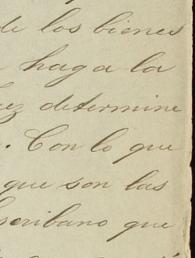 de los bienes
haga la
ez determine
. Con lo que
que son las
scribano que